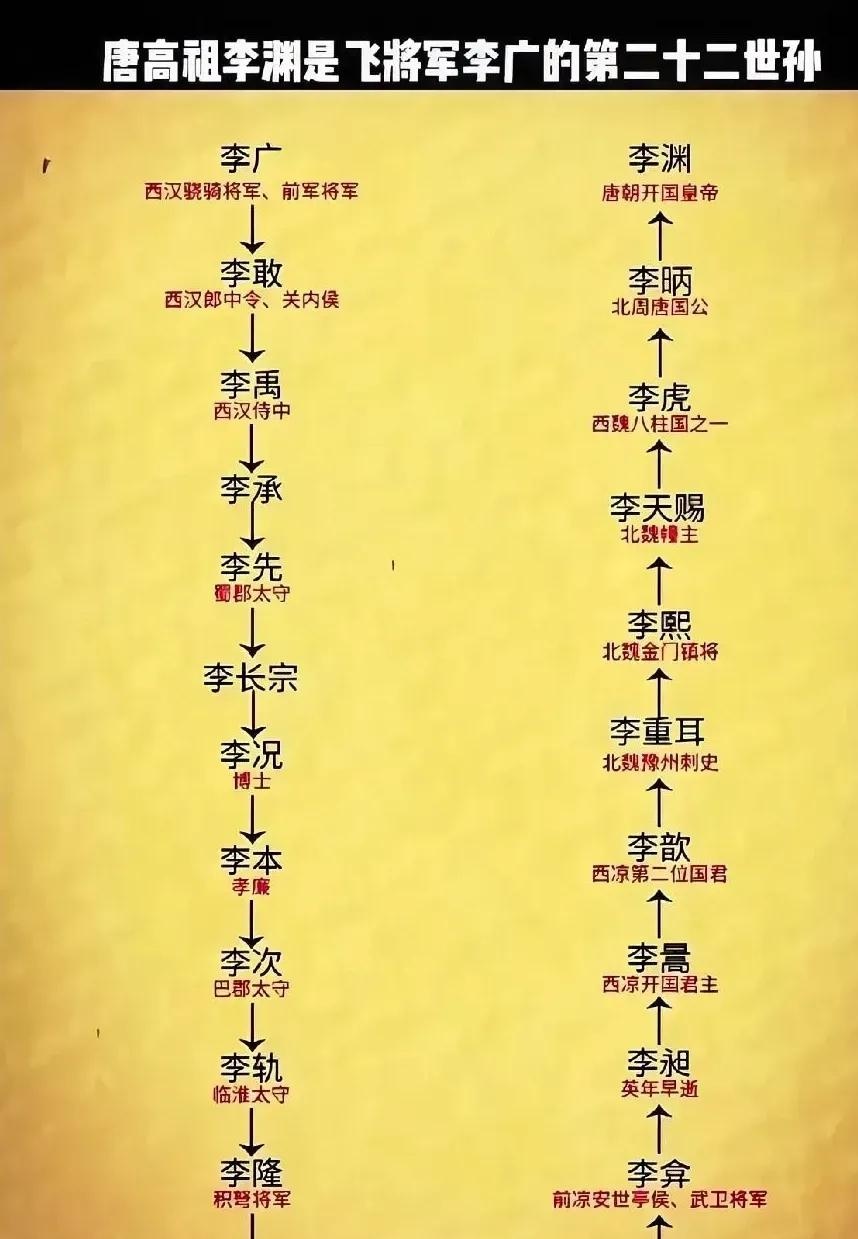 唐高祖李渊是飞將军李广的第二十二世孙
李广
西汉骁骑将军、前军将军
李敢
西汉郎中令、关内侯
李禹
西汉侍中
李承
李先
蜀郡太守
李长宗
李况
博士
李本
孝廉
李次
巴郡太守
李轨
临淮太守
李隆
积弩将军
李渊
唐朝开国皇帝
李昞
北周唐国公
李虎
西魏八柱国之一
李天赐
北魏幢主
李熙
北魏金门镇将
李重耳
北魏豫州刺史
李歆
西凉第二位国君
李暠
西凉开国君主
李昶
英年早逝
李弇
前凉安世亭侯、武卫将军